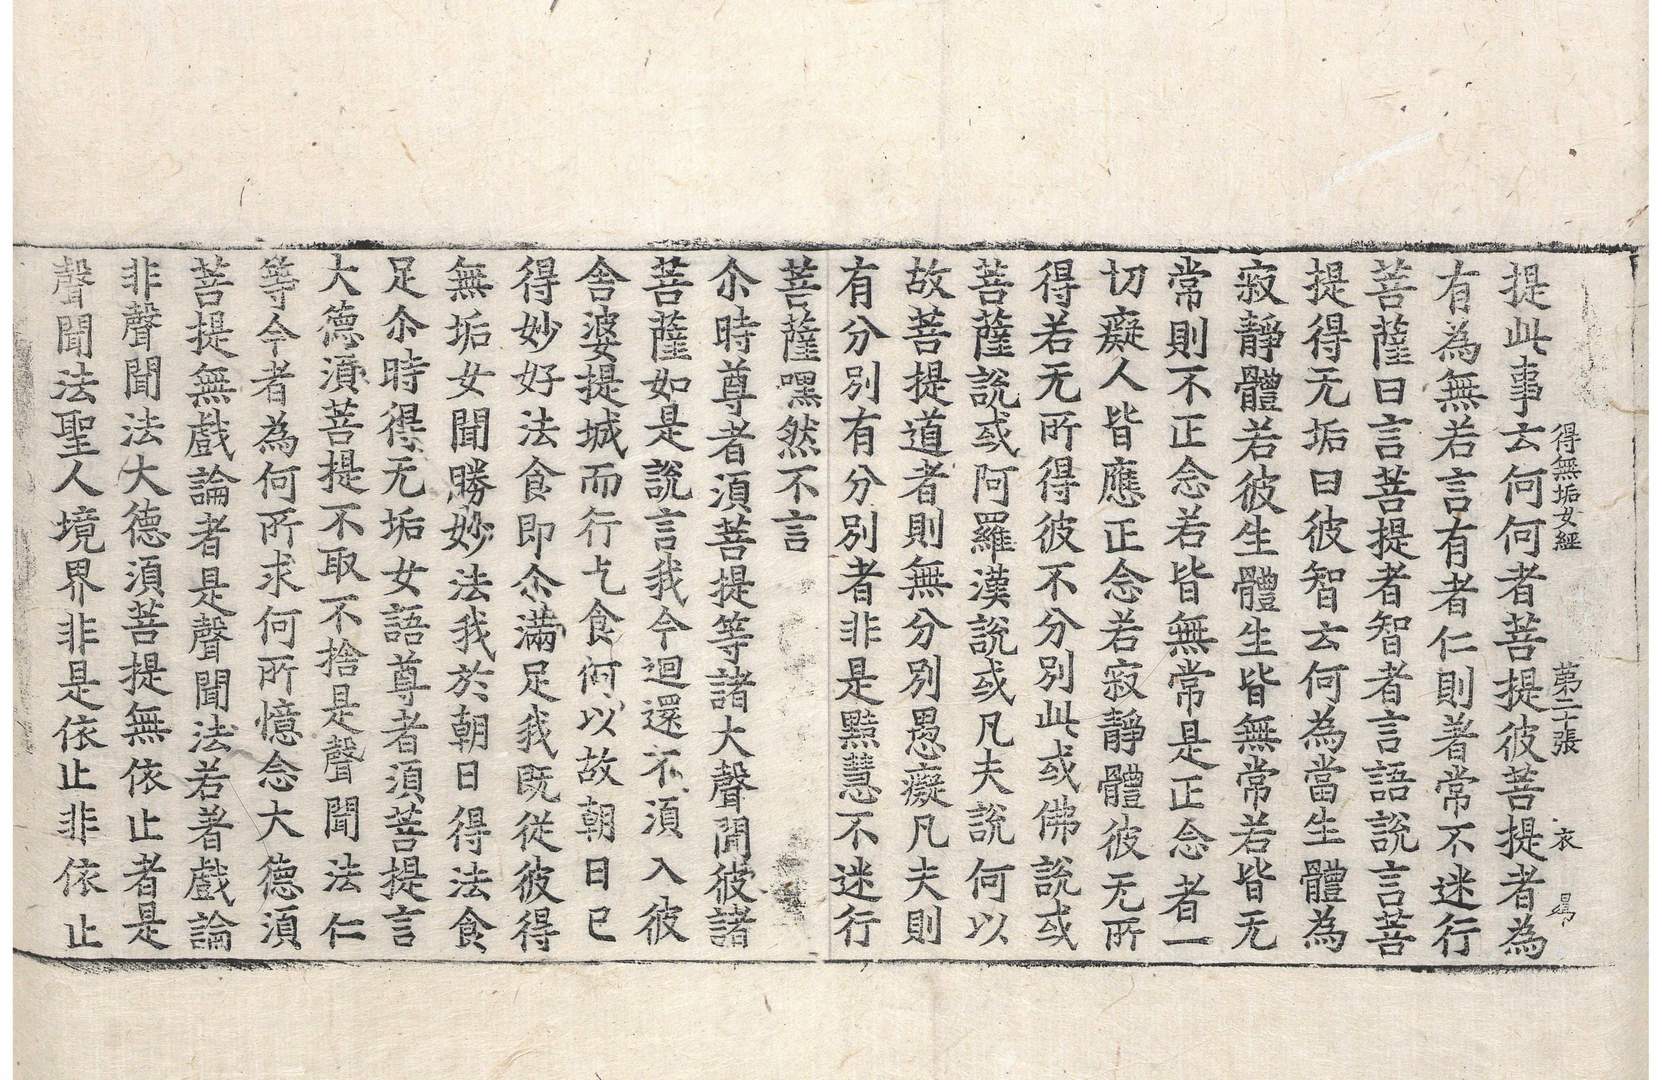 得無垢女經 第二十張 衣
提此事云何何者菩提彼菩提者為
有為無若言有者仁則著常不迷行
菩薩曰言菩提者智者言語說言菩
提得无垢曰彼智云何為當生體為
寂靜體若彼生體生皆無常若皆无
常則不正念若皆無常是正念者一
切癡人皆應正念若寂靜體彼无所
得若无所得彼不分別此或佛說或
菩薩說或阿羅漢說或凡夫說何以
故菩提道者則無分別愚癡凡夫則
有分別有分別者非是黠慧不迷行
菩薩嘿然不言
尒時尊者須菩提等諸大聲聞彼諸
菩薩如是說言我今迴還不須入彼
舍婆提城而行乞食何以故朝日已
得妙好法食即尒滿足我既從彼得
無垢女聞勝妙法我於朝日得法食
足尒時得无垢女語尊者須菩提言
大德須菩提不取不捨是聲聞法仁
等今者為何所求何所憶念大德須
菩提無戲論者是聲聞法若著戲論
非聲聞法大德須菩提無依止者是
聲聞法聖人境界非是依止非依止